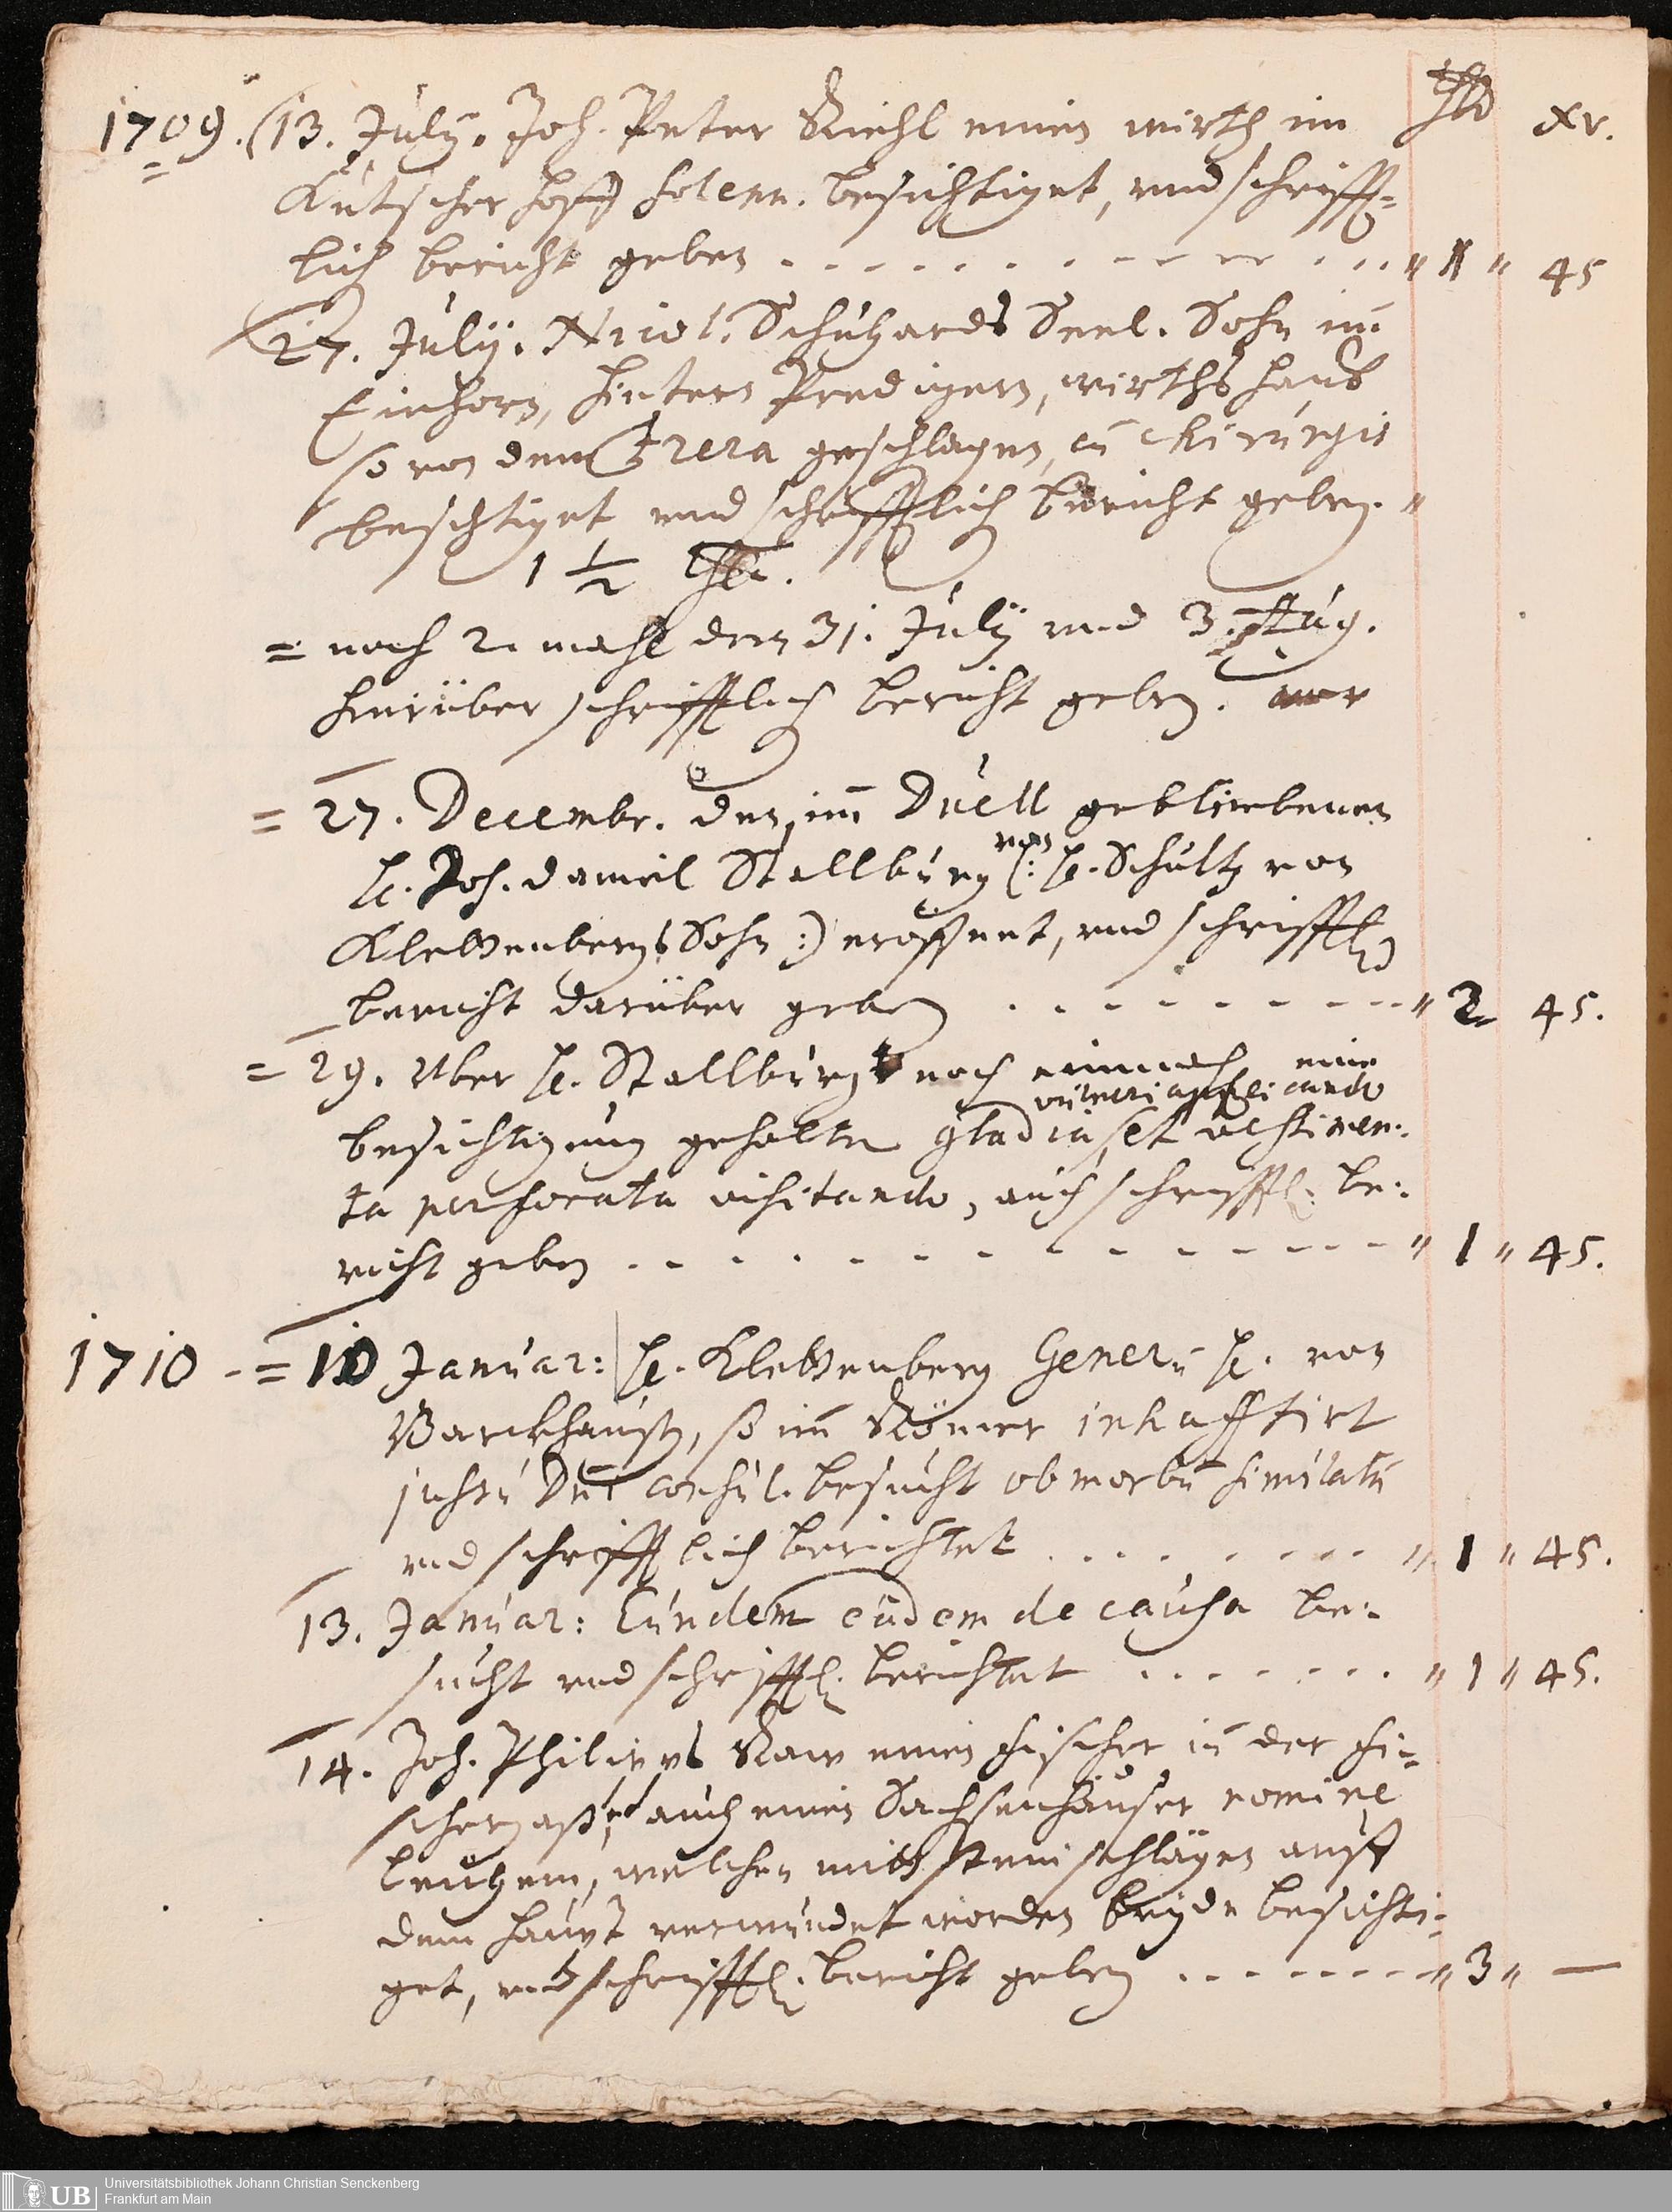 1709. (13. July. Joh. Peter Riehl einen wirth im xr.
Kutscher hoff solenn. besichtiget, und schrifft-
lich bericht geben - - - - - - - - - - " 1 " 45
27. Julÿ. Schuhards Seel. Sohn im
Einhorn, hintern Predigern, wirths haus
so von dem geschlagen, cū chirurgis
besichtiget und schrifftlich bericht geben. "
1 1/2
= noch 2. mahl den 31. Julÿ und 3. Aug.
hierüber schrifftlich bericht geben.
= 27. Decembr. den im Duell gebliebenen
H. Joh. Daniel Stallburg (: H. Schultz von
Klettenbergs Sohn :) eröffnet, und schrifftl.
bericht darüber geben - - - - - - - - " 2 45.
= 29. Uber H. Stallburg noch einmah eine
besichtigung gehalten gladiū et vestimen-
ta perforata visitando, auch schrifftl. be-
richt geben - - - - - - - - - - - - " 1 " 45.
1710 - = 10 Januar: H. Klettenberg Generū H. von
Barckhauß, so im Römer inhafftirt
jussu Dnī consul. besucht ob morbū simulatū
und schrifftlich berichtet - - - - - - - " 1 " 45.
13. Januar: Eundem eadem de causa be-
sucht und schrifftl. berichtet - - - - - - - " 1 " 45.
14. Joh. Philipps Raw einen fischer in der fi-
schergaß, auch einen Sachsenhäuser nomine
welcher mitt stein schlägen auff
dem haupt verwundet worden beyde besichti-
get, und schrifftl. bericht geben - - - - - - - " 3 " —
UB Universitätsbibliothek Johann Christian Senckenberg
Frankfurt am Main